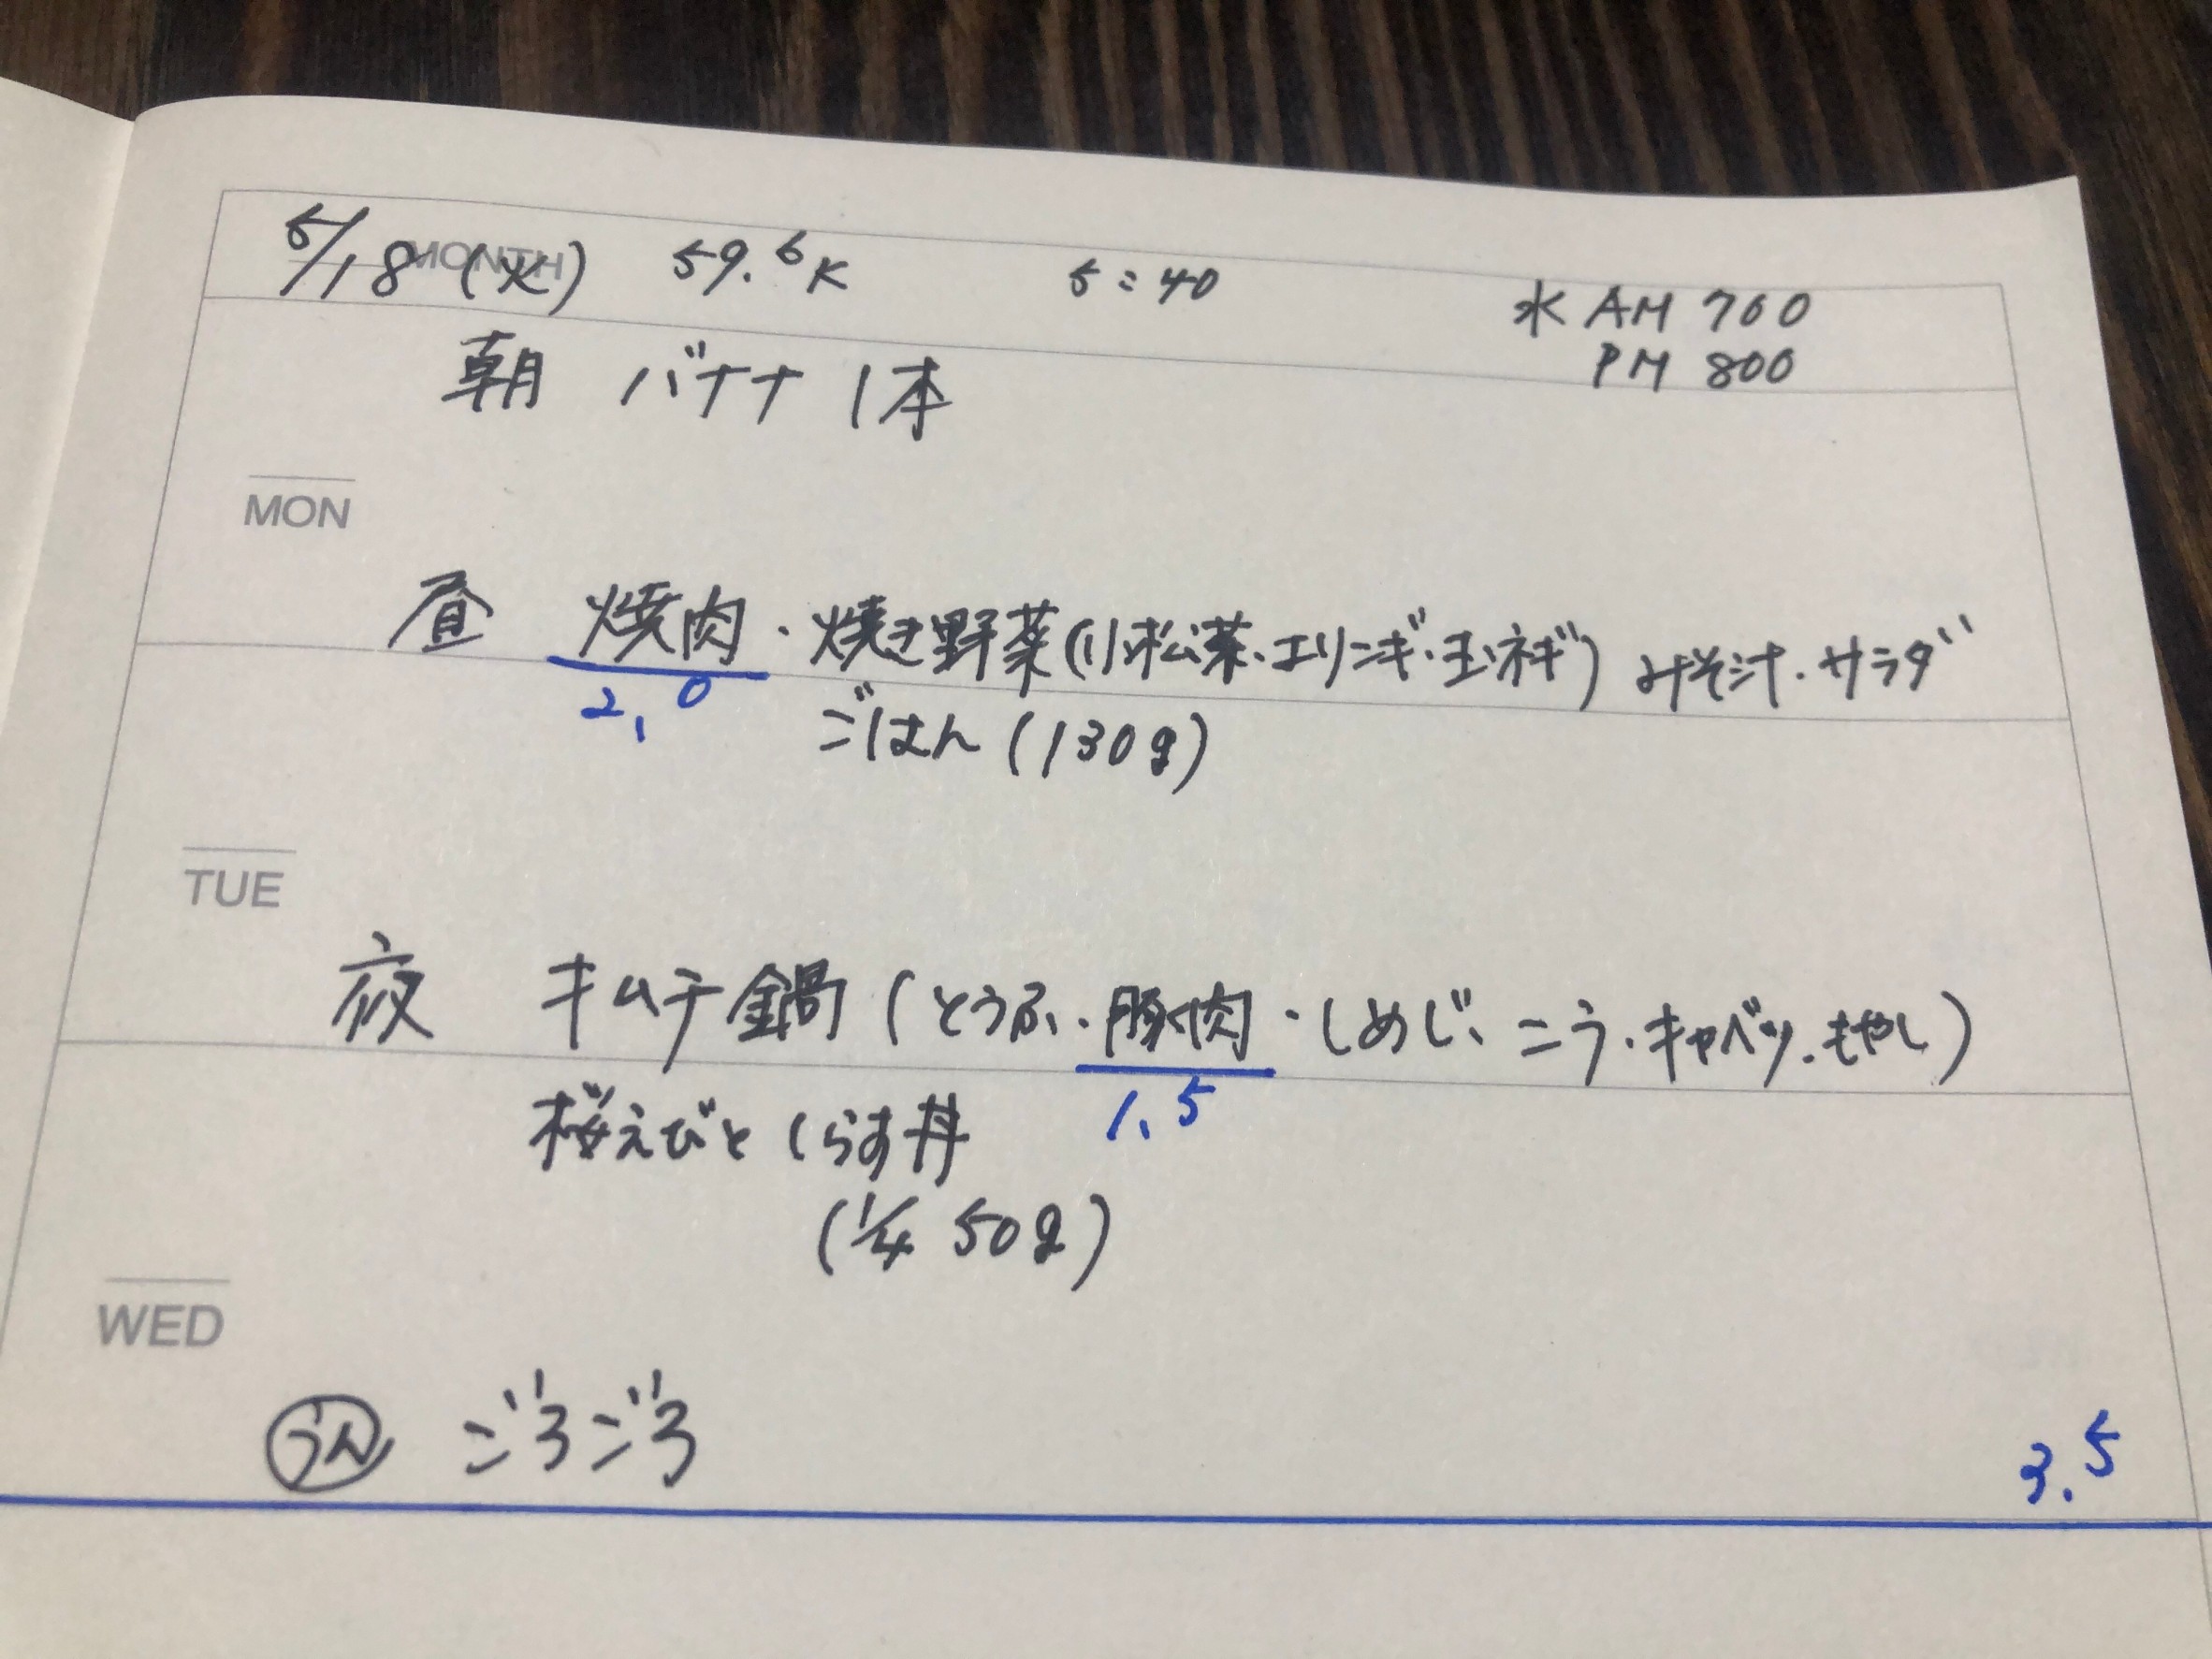 MONTH
5/18(火) 59.6K 5:40 水 AM 760
PM 800
朝 バナナ 1本
MON
昼 焼肉・焼き野菜(小松菜、エリンギ・玉ネギ) みそ汁・サラダ
2.0 ごはん(130g)
TUE
夜 キムチ鍋(とうふ・豚肉・しめじ、ニラ・キャベツ・もやし)
桜えびとしらす丼 1.5
(1/4 50g)
WED
うん ごろごろ
3.5